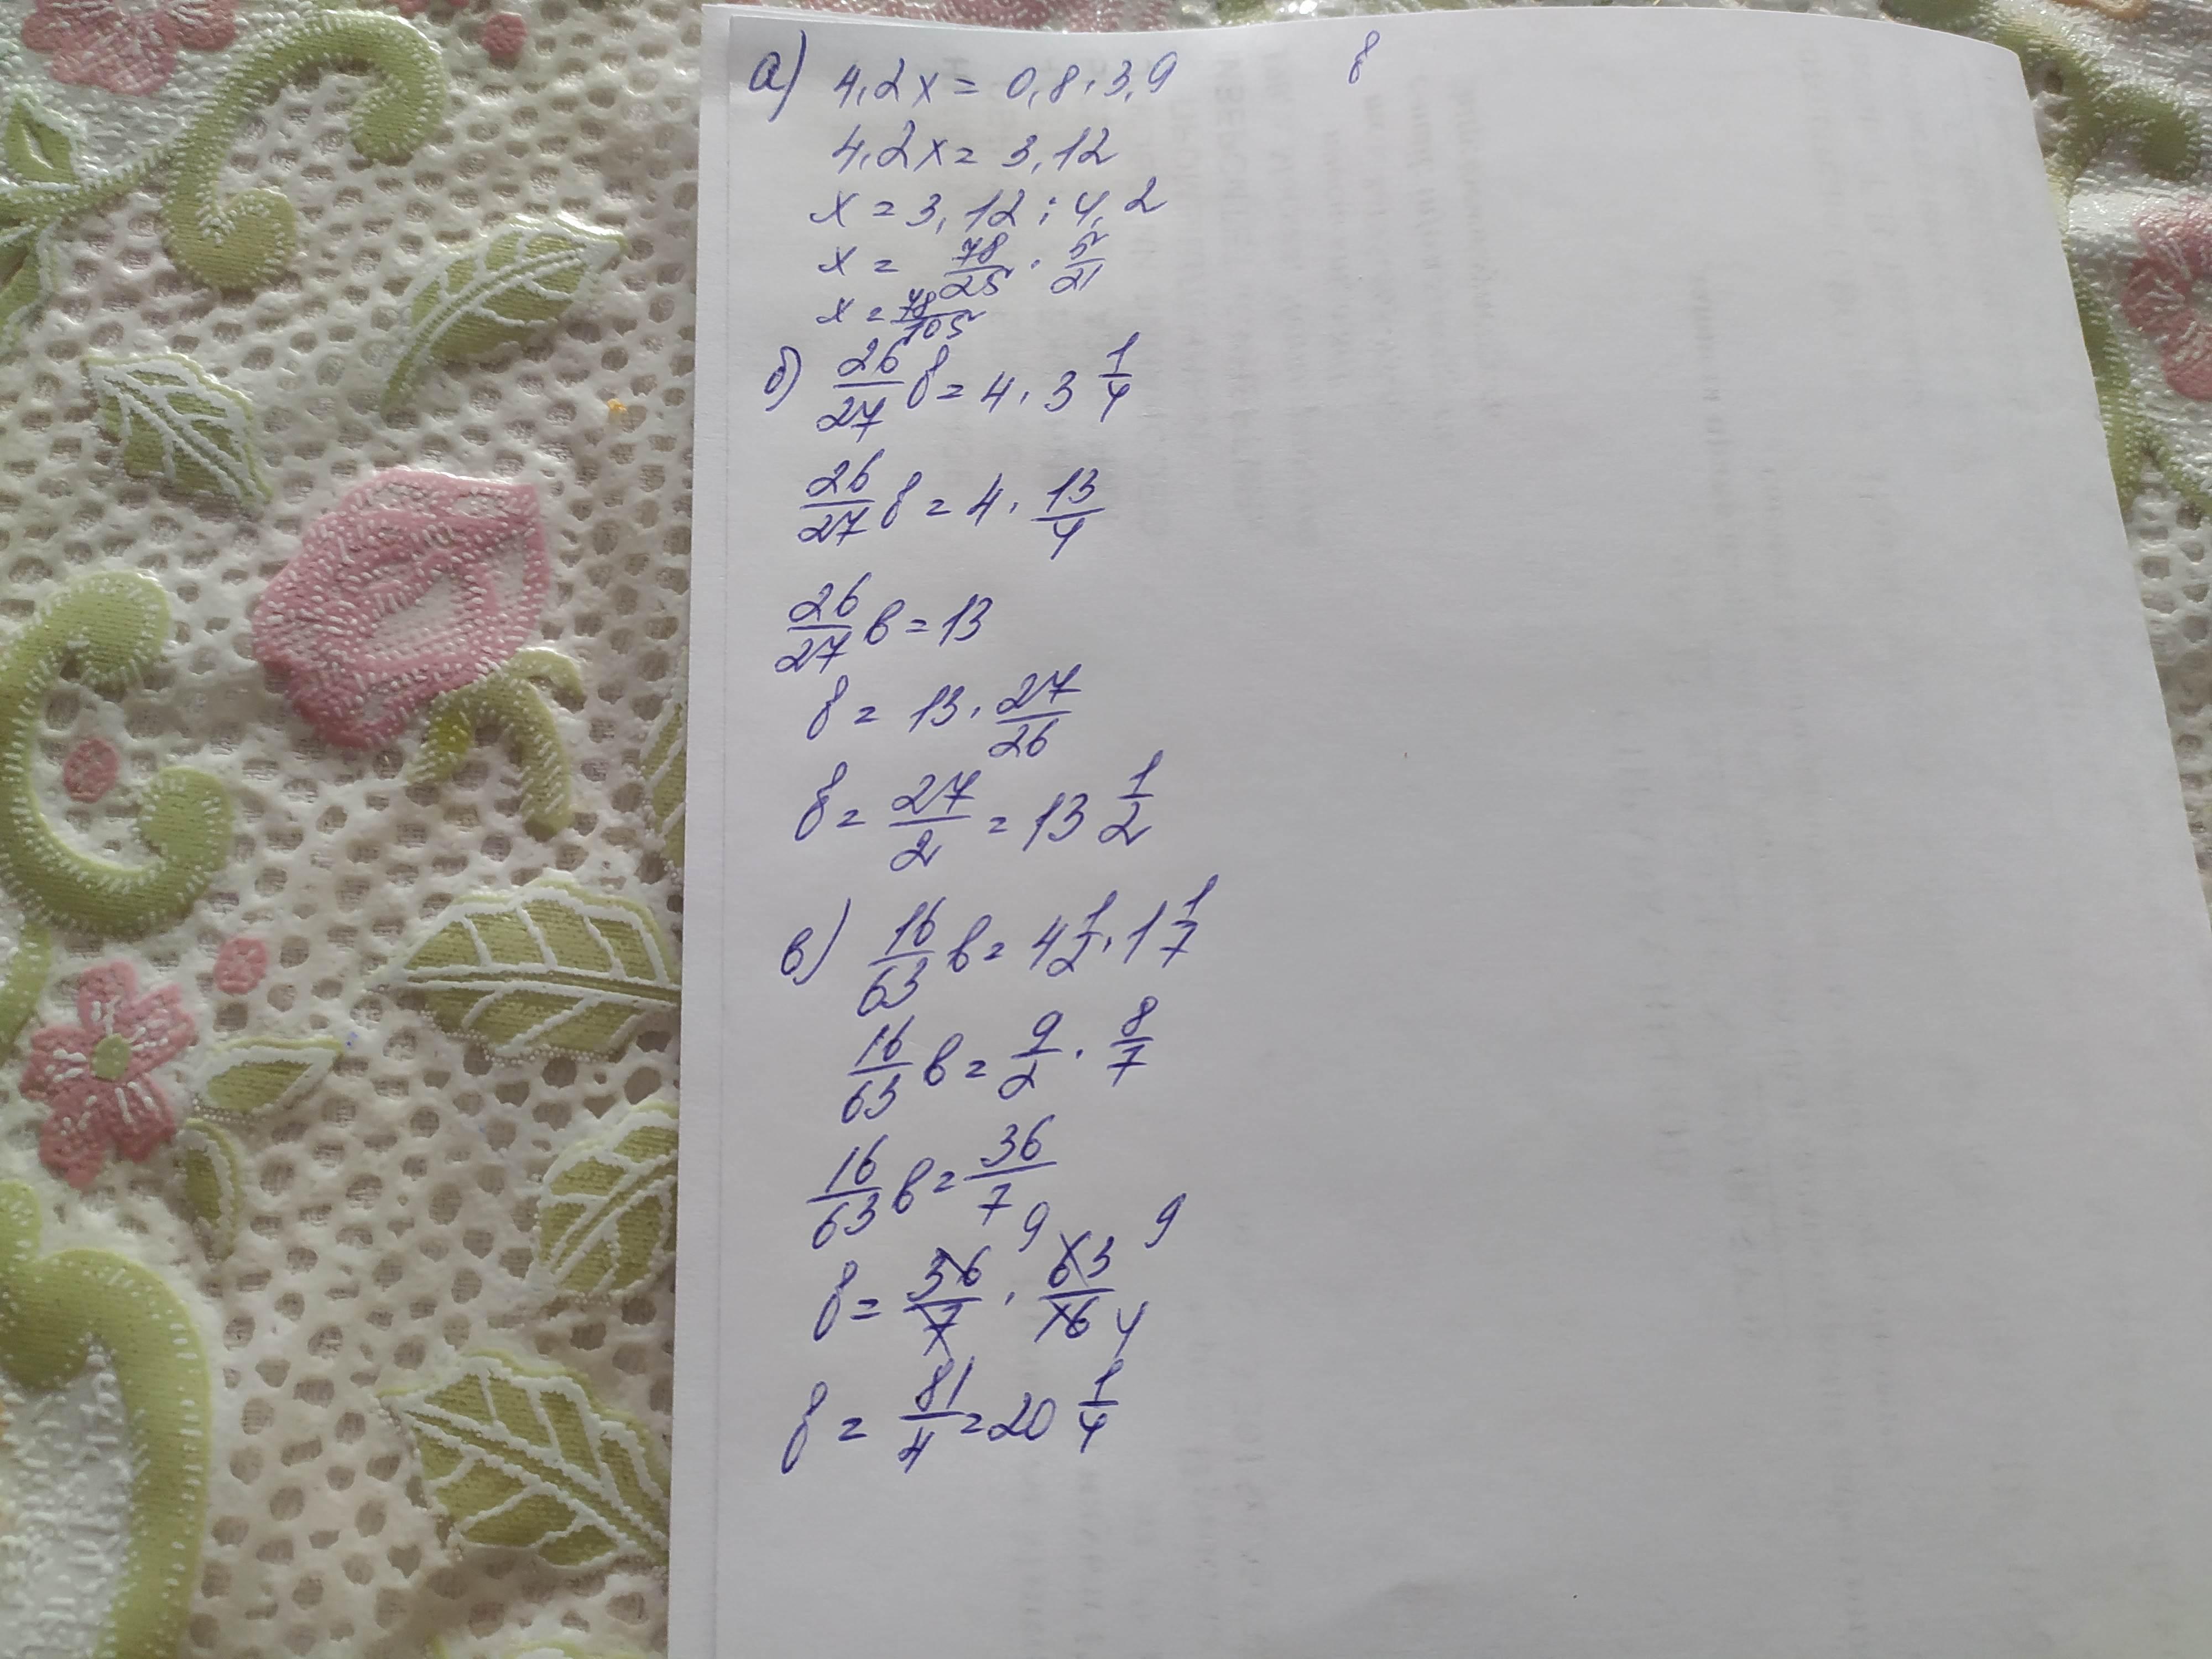 а) 4,2x = 0,8 · 3,9
в
4,2x = 3,12
x = 3,12 : 4,2
x = 78/25 · 5/21
x = 78/105
б) 26/27 в = 4 · 3 1/4
26/27 в = 4 · 13/4
26/27 в = 13
в = 13 · 27/26
в = 27/2 = 13 1/2
в) 16/63 в = 4 1/2 · 1 1/7
16/63 в = 9/2 · 8/7
16/63 в = 36/7
9 9
в = 36/7 · 63/16 4
в = 81/4 = 20 1/4